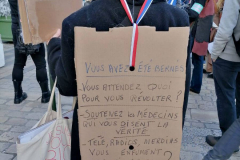 VOUS AVEZ ÉTÉ BERNÉS
VOUS ATTENDEZ QUOI
POUR VOUS RÉVOLTER ?
- SOUTENEZ LES MÉDECINS
QUI VOUS DISENT LA
VÉRITÉ
- TÉLÉ, RADIOS, MERDIAS
VOUS